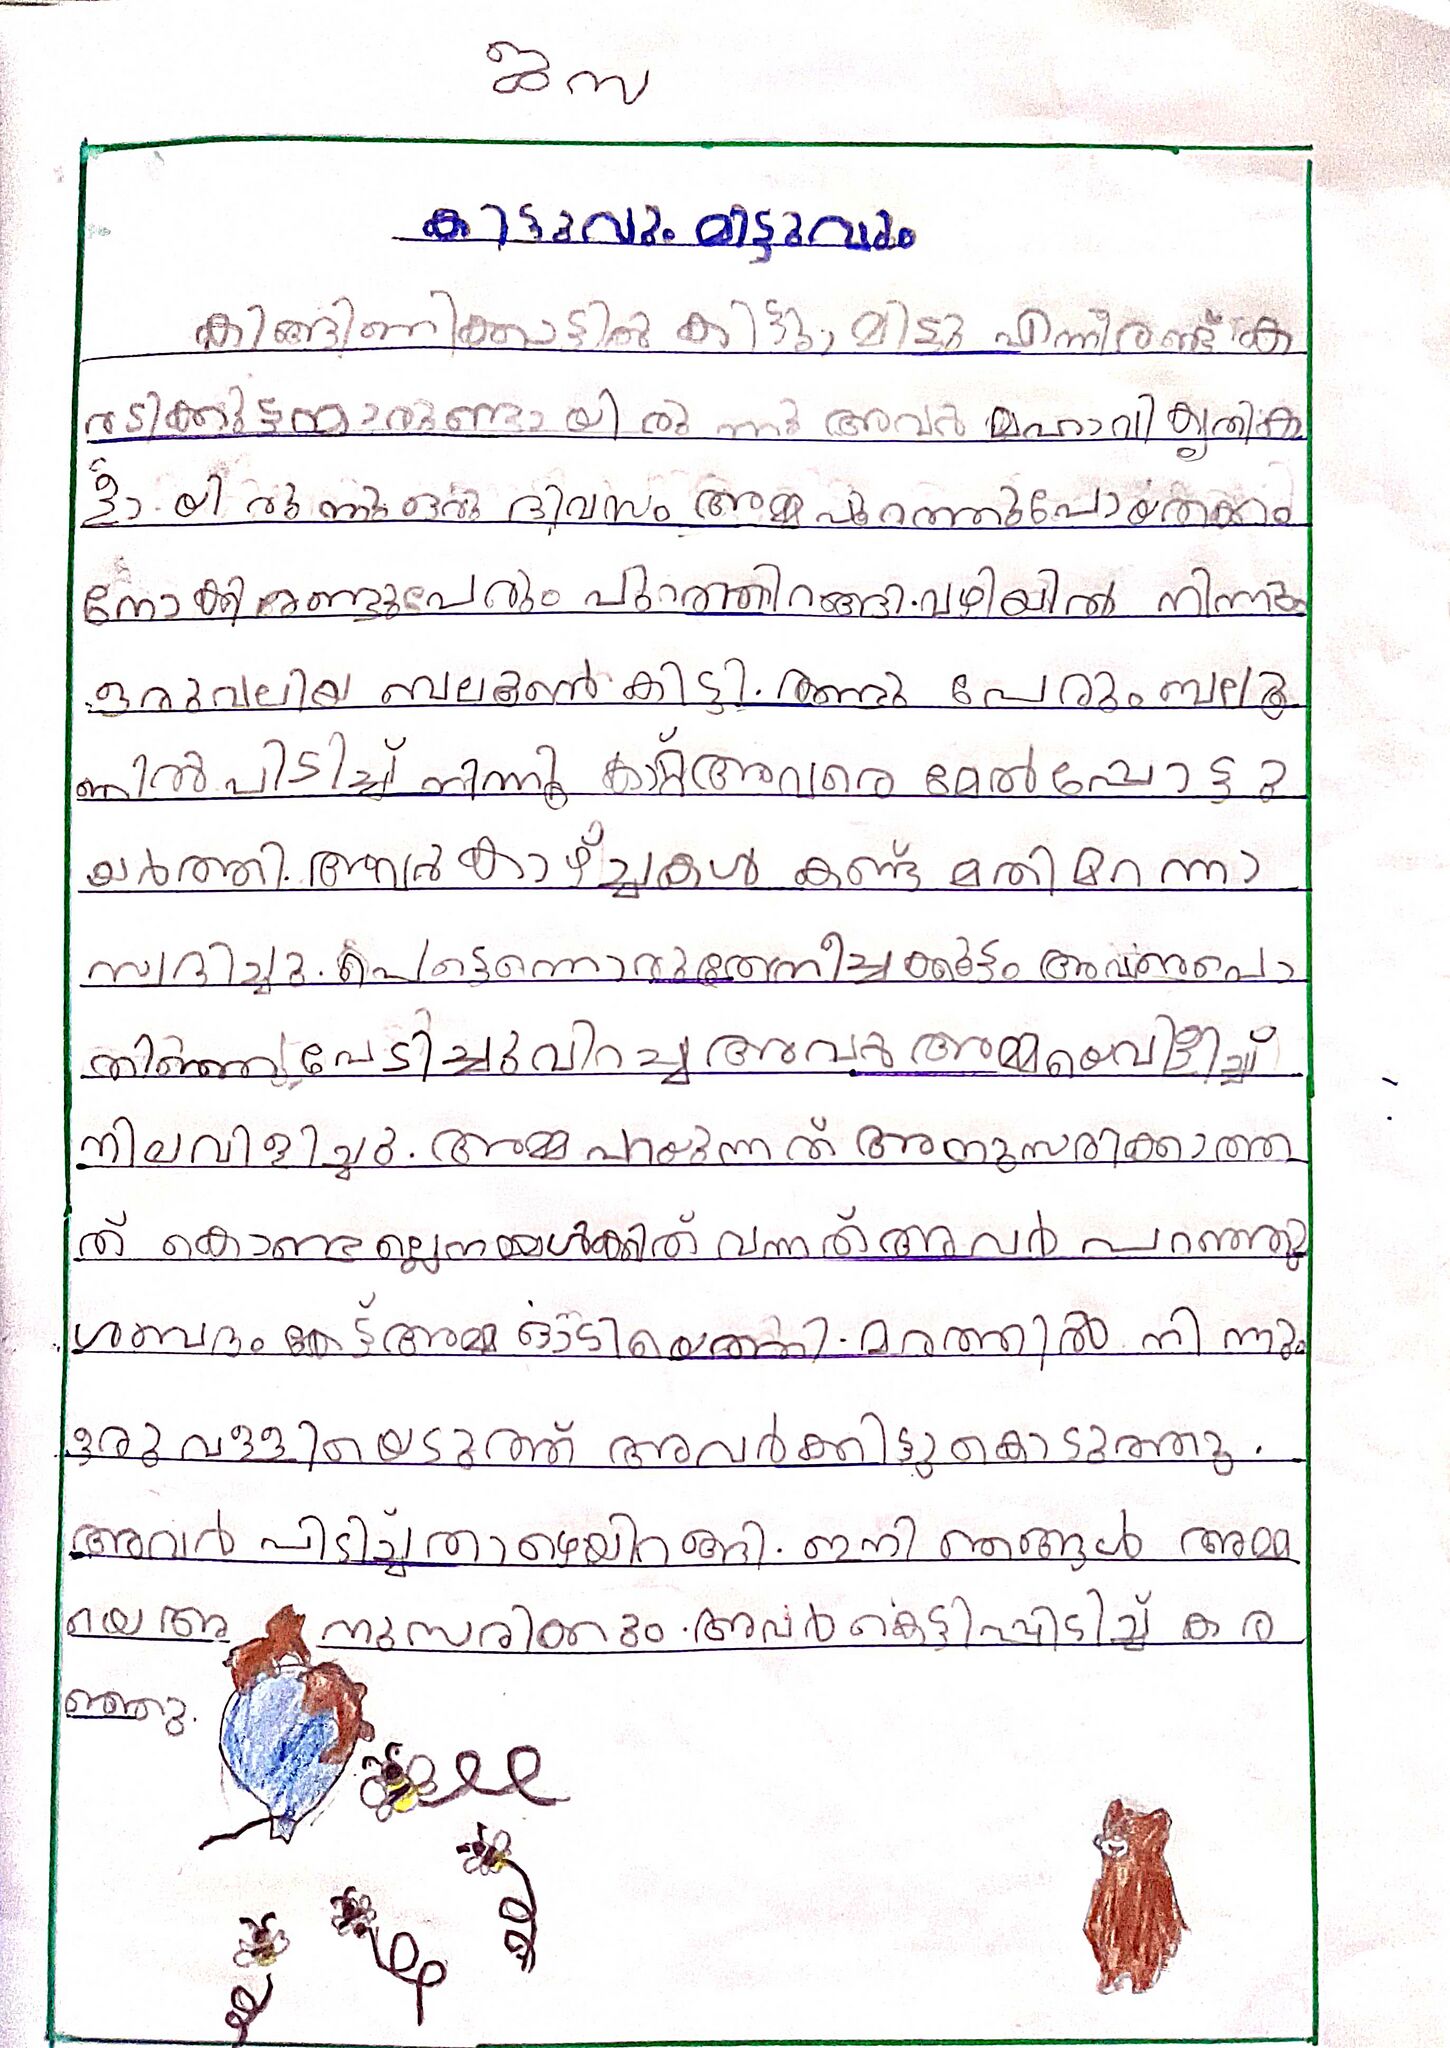 കിട്ടുവും മിട്ടുവും
കിങ്ങിണിക്കാട്ടിൽ കിട്ടു, മിട്ടു എന്നീരണ്ട് ക
രടിക്കുട്ടന്മാരുണ്ടായിരുന്നു അവർ മഹാവികൃതിക
ളായിരുന്നു ഒരു ദിവസം അമ്മ പുറത്തുപോയതക്കം
നോക്കി രണ്ടുപേരും പുറത്തിറങ്ങി. വഴിയിൽ നിന്നും
ഒരുവലിയ ബലൂൺ കിട്ടി. രണ്ടു പേരും ബലൂ
ണിൽ പിടിച്ച് നിന്നു കാറ്റ് അവരെ മേൽപ്പോട്ടു
യർത്തി. അവർ കാഴ്ച്ചകൾ കണ്ട് മതിമറന്നാ
സ്വദിച്ചു. പെട്ടെന്നൊരു തേനീച്ചക്കൂട്ടം അവരെപൊ
തിഞ്ഞു പേടിച്ചുവിറച്ച അവർ അമ്മയെവിളിച്ച്
നിലവിളിച്ചു. അമ്മ പറയുന്നത് അനുസരിക്കാത്ത
ത് കൊണ്ടല്ലെ നമ്മൾക്കിത് വന്നത് അവർ പറഞ്ഞു
ശബ്ദം കേട്ട് അമ്മ ഓടിയെത്തി. മരത്തിൽ നിന്നും
ഒരു വള്ളിയെടുത്ത് അവർക്കിട്ടു കൊടുത്തു.
അവർ പിടിച്ച് താഴെയിറങ്ങി. ഇനി ഞങ്ങൾ അമ്മ
യെ അനുസരിക്കും. അവർ കെട്ടിപ്പിടിച്ച് കര
ഞ്ഞു.